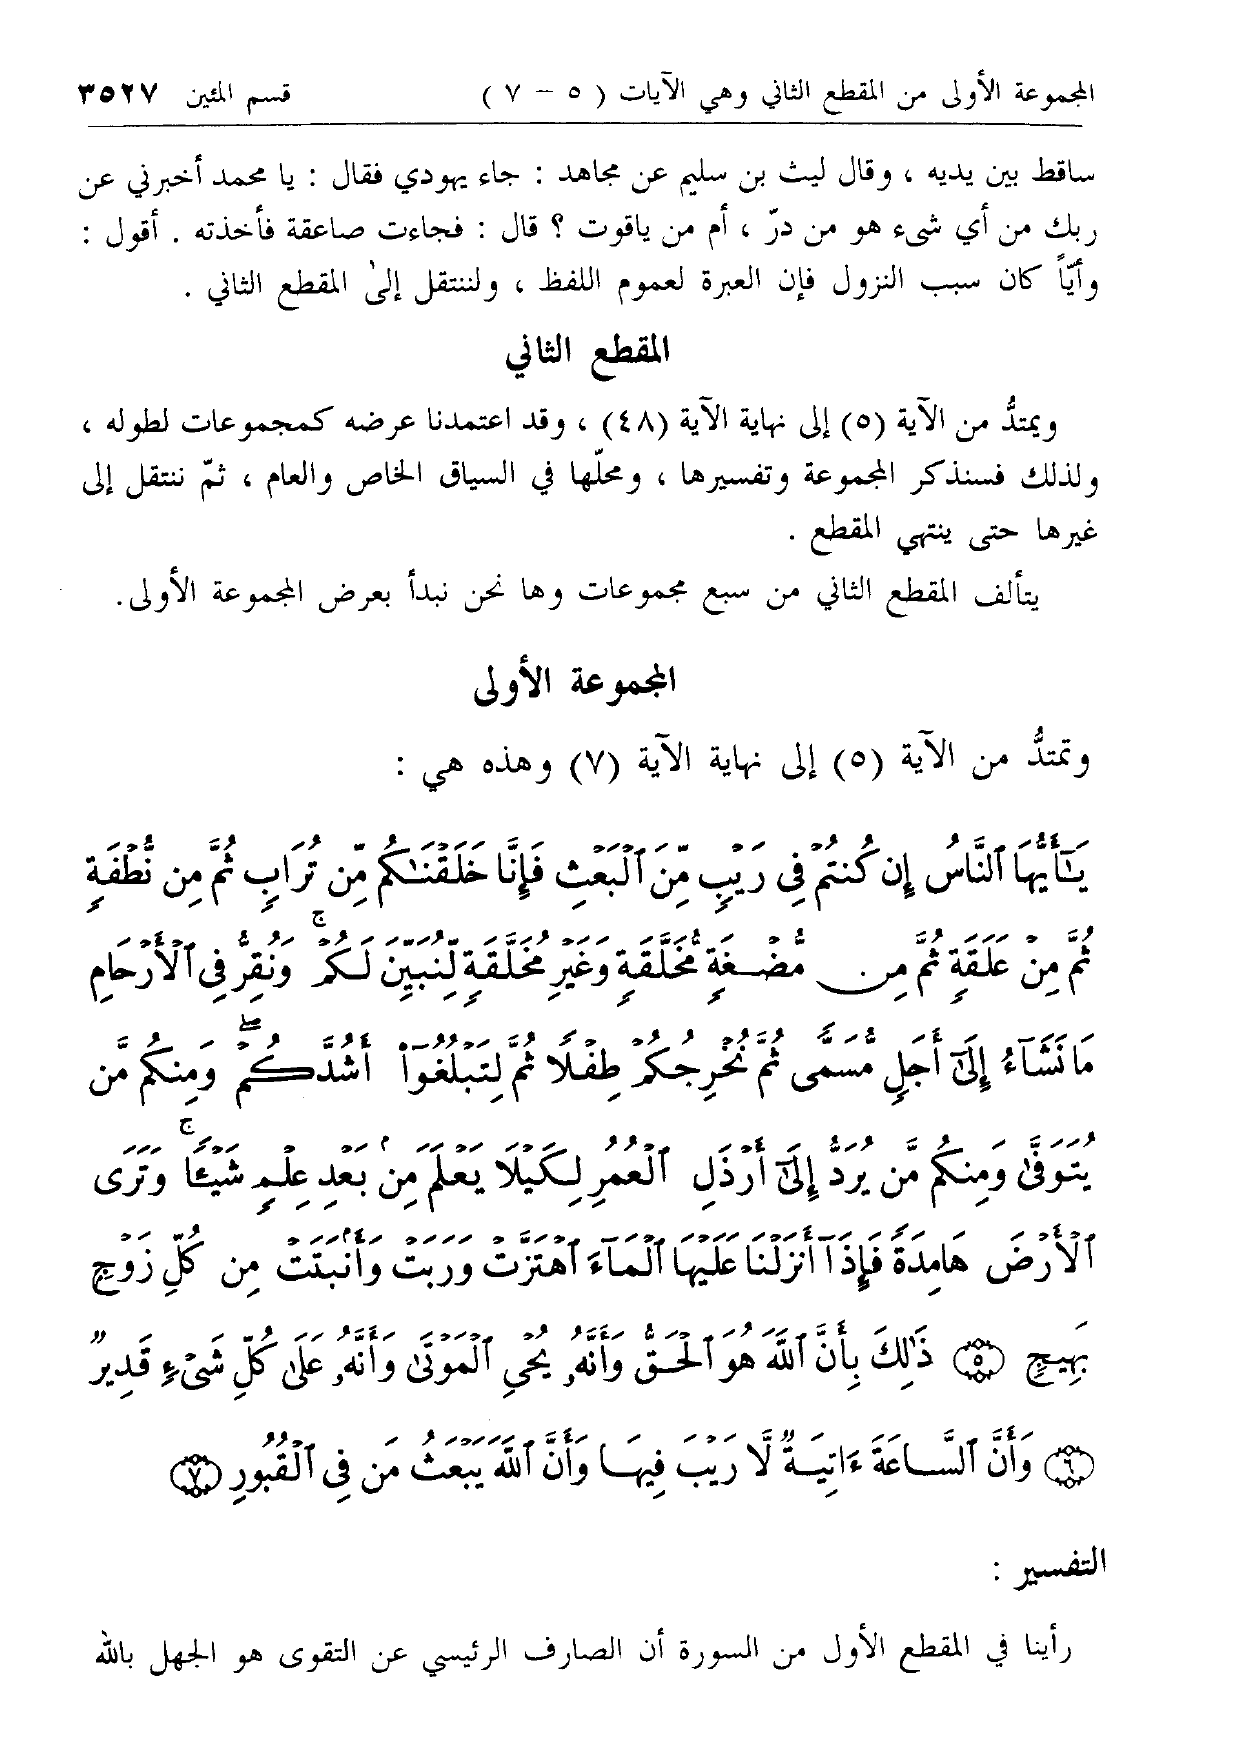 المجموعة الأولى من المقطع الثاني وهي الآيات ( ٥ – ٧ ) قسم المئين ٣٥٢٧
ساقط بين يديه ، وقال ليث بن سليم عن مجاهد : جاء يهودي فقال : يا محمد أخبرني عن
ربك من أي شيء هو من درّ ، أم من ياقوت ؟ قال : فجاءت صاعقة فأخذته . أقول :
وأيّاً كان سبب النزول فإن العبرة لعموم اللفظ ، ولننتقل إلىٰ المقطع الثاني .
المقطع الثاني
ويمتدُّ من الآية (٥) إلى نهاية الآية (٤٨) ، وقد اعتمدنا عرضه كمجموعات لطوله ،
ولذلك فسنذكر المجموعة وتفسيرها ، ومحلّها في السياق الخاص والعام ، ثمّ ننتقل إلى
غيرها حتى ينتهي المقطع .
يتألف المقطع الثاني من سبع مجموعات وها نحن نبدأ بعرض المجموعة الأولى.
المجموعة الأولى
وتمتدُّ من الآية (٥) إلى نهاية الآية (٧) وهذه هي :
يَـٰٓأَيُّهَا ٱلنَّاسُ إِن كُنتُمْ فِى رَيْبٍ مِّنَ ٱلْبَعْثِ فَإِنَّا خَلَقْنَـٰكُم مِّن تُرَابٍ ثُمَّ مِن نُّطْفَةٍ
ثُمَّ مِنْ عَلَقَةٍ ثُمَّ مِن مُّضْغَةٍ مُّخَلَّقَةٍ وَغَيْرِ مُخَلَّقَةٍ لِّنُبَيِّنَ لَكُمْ ۚ وَنُقِرُّ فِى ٱلْأَرْحَامِ
مَا نَشَآءُ إِلَىٰٓ أَجَلٍ مُّسَمًّى ثُمَّ نُخْرِجُكُمْ طِفْلًا ثُمَّ لِتَبْلُغُوٓا۟ أَشُدَّكُمْ ۖ وَمِنكُم مَّن
يُتَوَفَّىٰ وَمِنكُم مَّن يُرَدُّ إِلَىٰٓ أَرْذَلِ ٱلْعُمُرِ لِكَيْلَا يَعْلَمَ مِنۢ بَعْدِ عِلْمٍ شَيْـًٔا ۚ وَتَرَى
ٱلْأَرْضَ هَامِدَةً فَإِذَآ أَنزَلْنَا عَلَيْهَا ٱلْمَآءَ ٱهْتَزَّتْ وَرَبَتْ وَأَنۢبَتَتْ مِن كُلِّ زَوْجٍۭ
بَهِيجٍ ﴿٥﴾ ذَٰلِكَ بِأَنَّ ٱللَّهَ هُوَ ٱلْحَقُّ وَأَنَّهُۥ يُحْىِ ٱلْمَوْتَىٰ وَأَنَّهُۥ عَلَىٰ كُلِّ شَىْءٍ قَدِيرٌ
﴿٦﴾ وَأَنَّ ٱلسَّاعَةَ ءَاتِيَةٌ لَّا رَيْبَ فِيهَا وَأَنَّ ٱللَّهَ يَبْعَثُ مَن فِى ٱلْقُبُورِ ﴿٧﴾
التفسير :
رأينا في المقطع الأول من السورة أن الصارف الرئيسي عن التقوى هو الجهل بالله